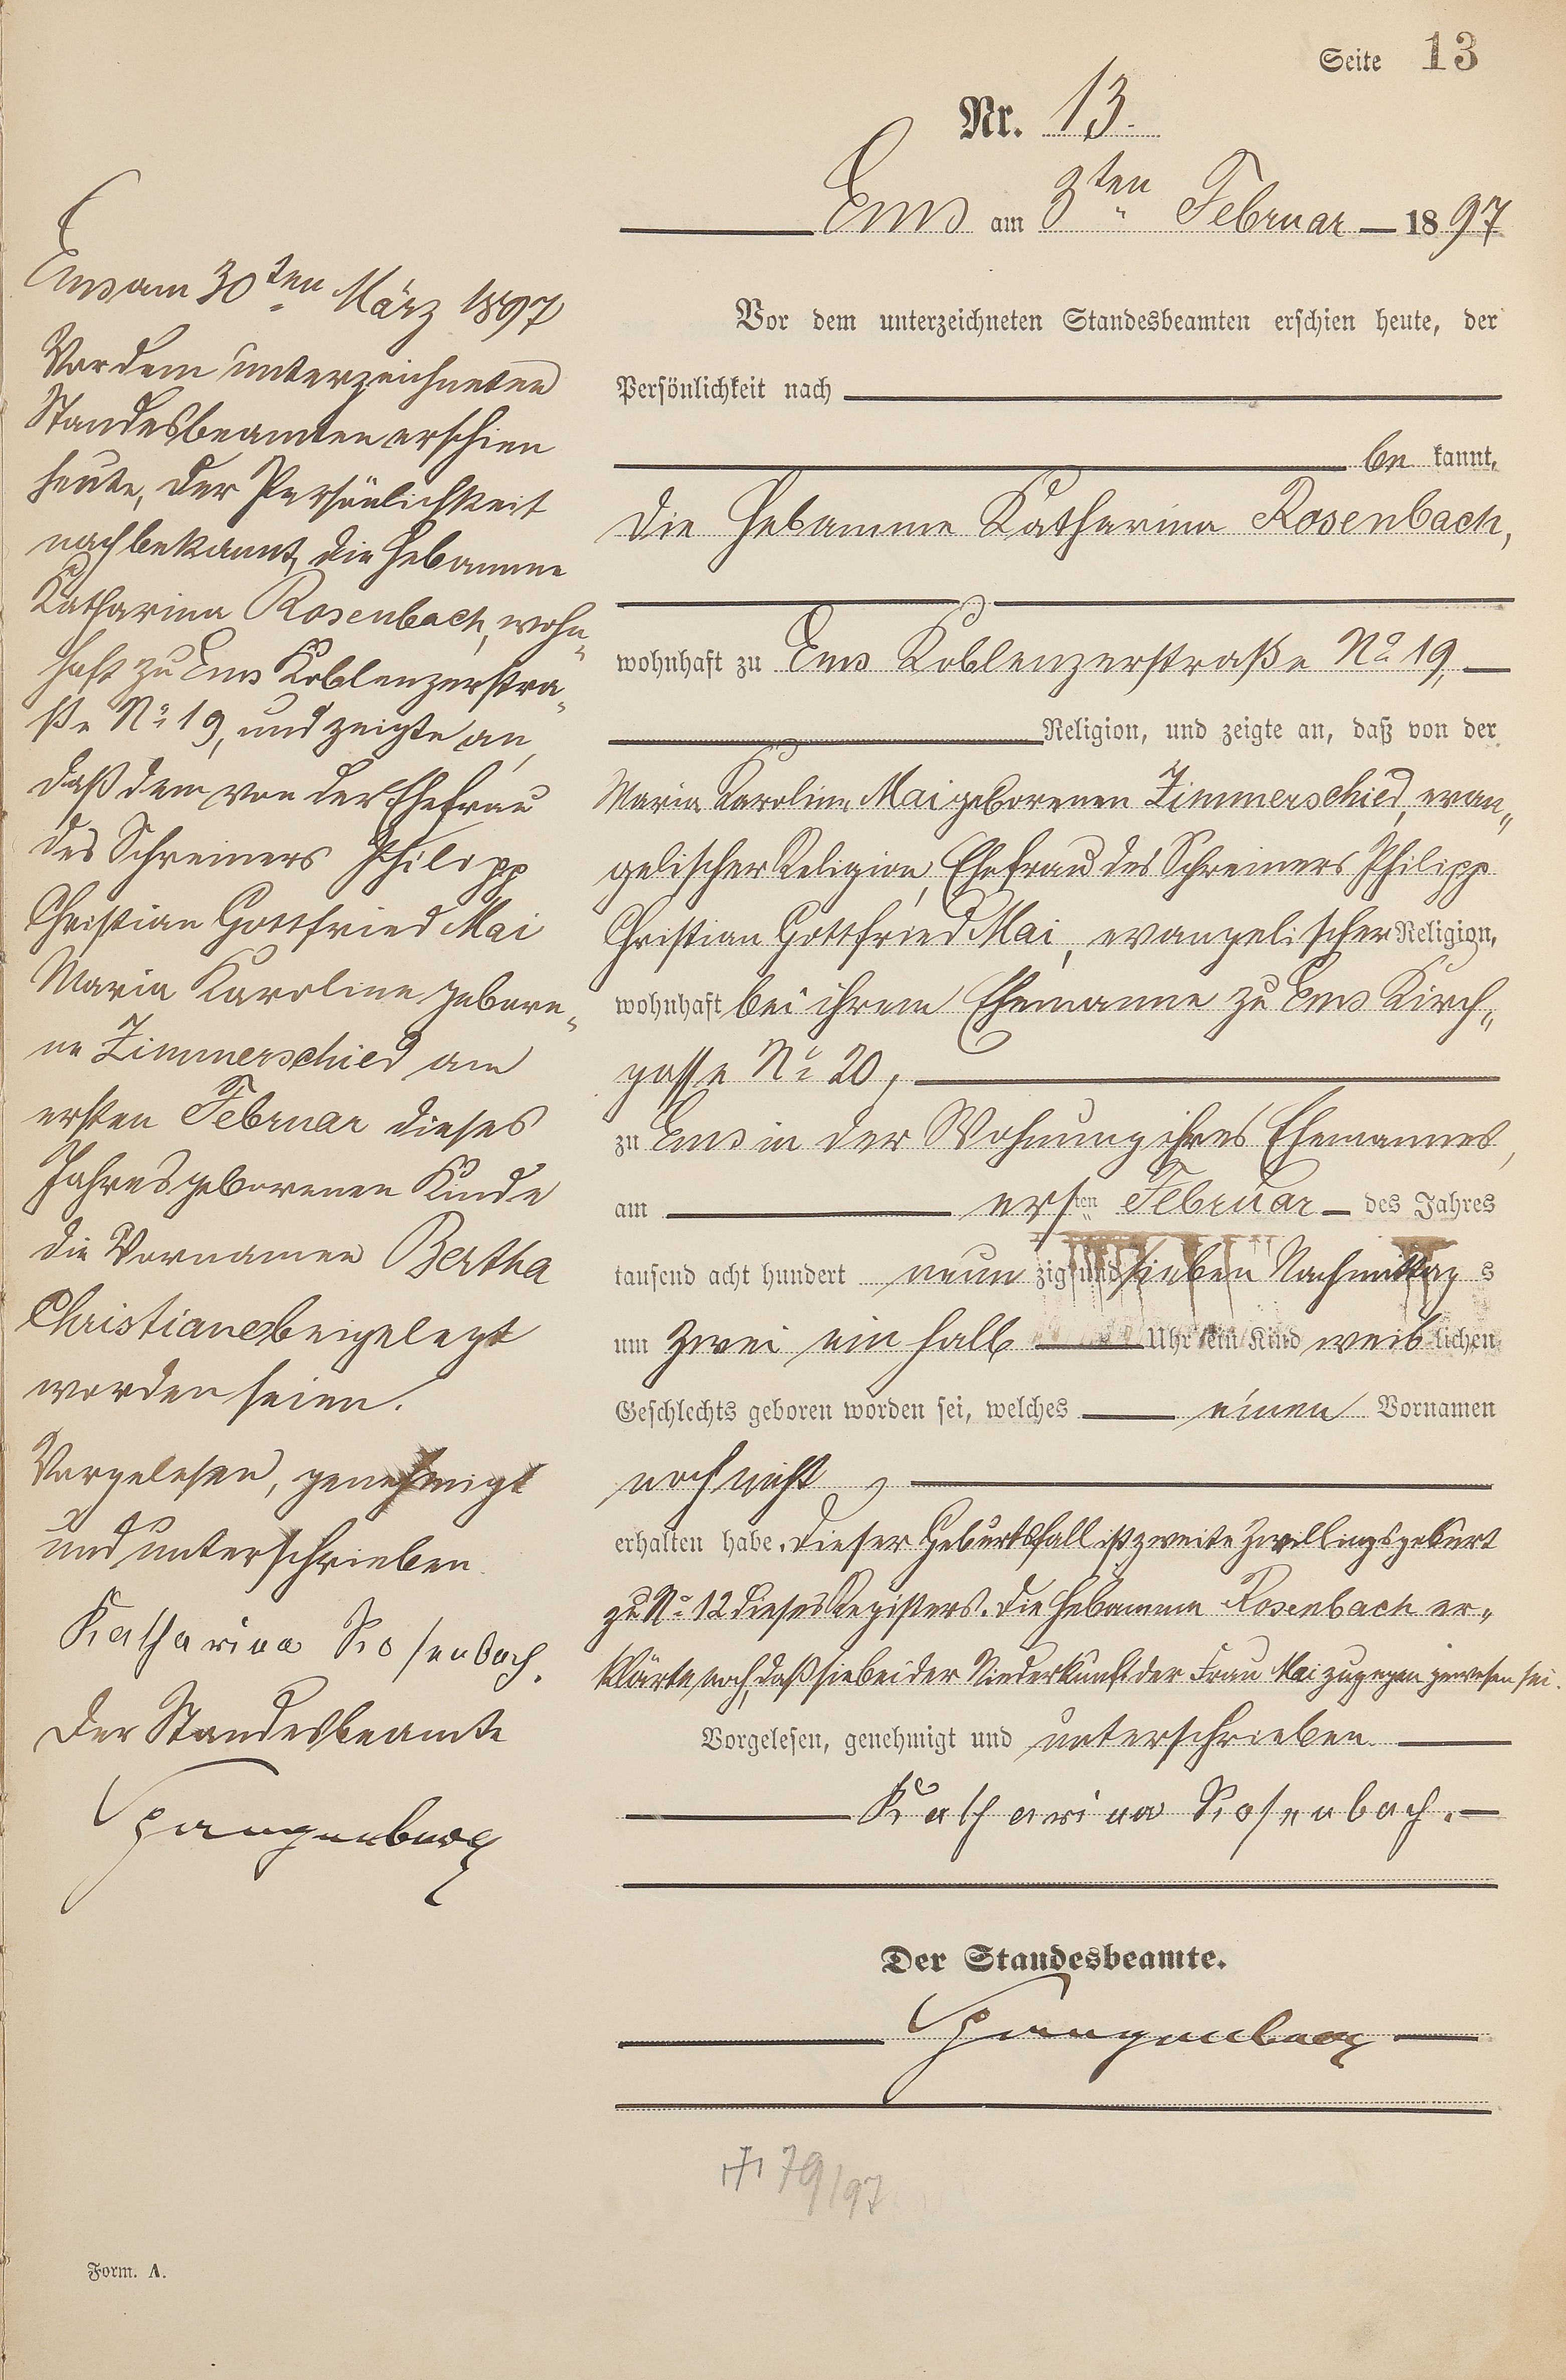 Seite 13
Nr. 13.
Ems am 3ten Februar 1897
Vor dem unterzeichneten Standesbeamten erschien heute, der
Persönlichkeit nach
be kannt,
die Hebamme Katharina Rosenbach,
wohnhaft zu Ems Koblenzerstraße No 19,
Religion, und zeigte an, daß von der
Maria Karoline Mai geborenen Zimmerschied, evan„
gelischer Religion, Ehefrau des Schreiners Philipp
Christian Gottfried Mai, evangelischer Religion,
wohnhaft bei ihrem Ehemanne zu Ems Kirch„
gasse No 20,
zu Ems in der Wohnung ihres Ehemannes,
am ersten Februar des Jahres
tausend acht hundert neun zig und sieben Nachmittag s
um zwei ein halb Uhr ein Kind weib lichen
Geschlechts geboren worden sei, welches einen Vornamen
noch nicht
erhalten habe. Dieser Geburtsfall ist zweite Zwillingsgeburt
zu No 12 dieses Registers. Die Hebamme Rosenbach er„
klärte noch, daß sie bei der Niederkunft der Frau Mai zugegen gewesen sei.
Vorgelesen, genehmigt und unterschrieben.
Katharina Rosenbach.
Der Standesbeamte.
Spangenberg
+ 79/97
Ems am 30ten März 1897
Vor dem unterzeichneten
Standesbeamten erschien
heute, der Persönlichkeit
nach bekannt, die Hebamme
Katharina Rosenbach, wohn„
haft zu Ems Koblenzerstra„
ße No 19, und zeigte an,
daß dem von der Ehefrau
des Schreiners Philipp
Christian Gottfried Mai
Maria Karoline gebore„
ne Zimmerschied am
ersten Februar dieses
Jahres geborenen Kinde
die Vornamen Bertha
Christiane beigelegt
worden seien.
Vorgelesen, genehmigt
und unterschrieben.
Katharina Rosenbach.
Der Standesbeamte
Spangenberg
Form. A.